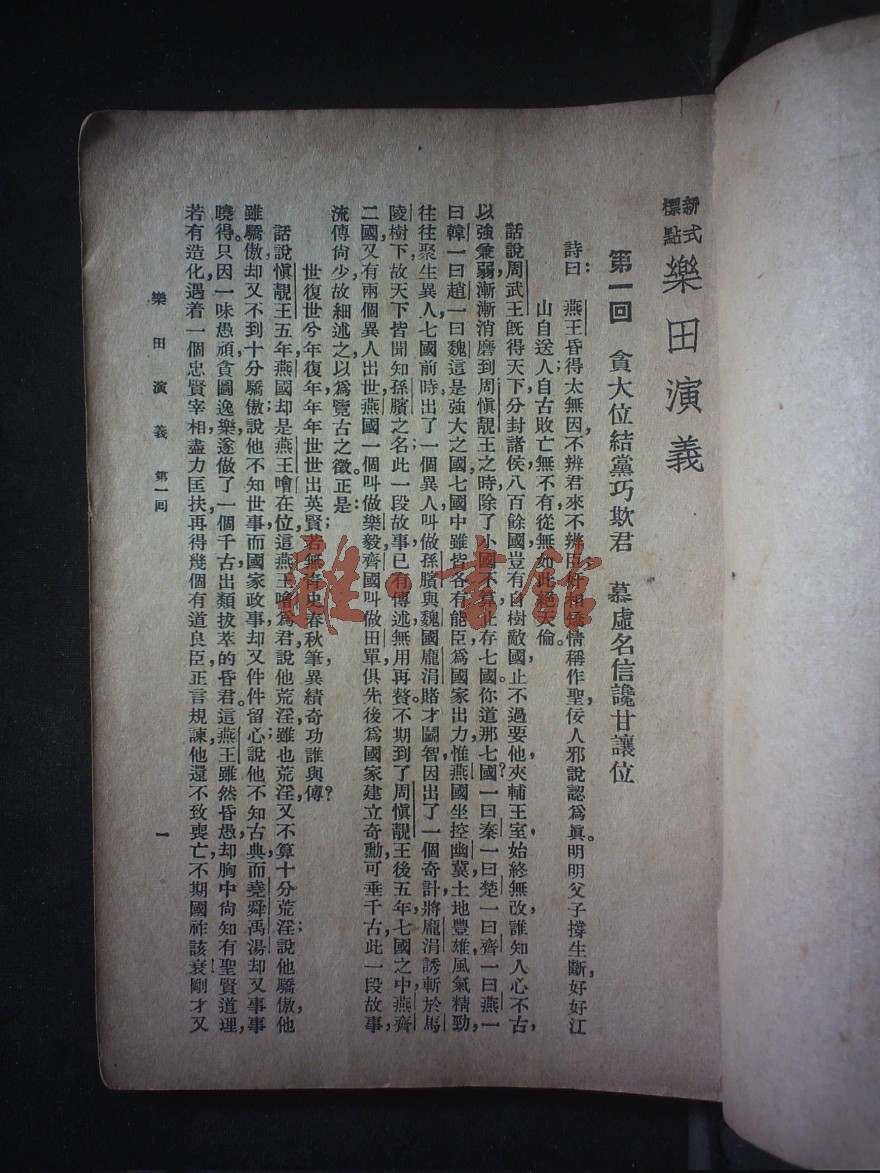 新式標點 樂田演義
第一回　貪大位結黨巧欺君　慕虛名信讒甘讓位
詩曰：燕王昏得太無因，不辨君來不辨臣。奸相矯情稱作聖，佞人邪說認爲眞。明明父子撐生斷，好好江
山自送人；自古敗亡無不有，從無如此絕天倫。
話說周武王旣得天下，分封諸侯八百餘國，豈有自樹敵國，止不過要他夾輔王室，始終無改，誰知人心不古，
以強兼弱，漸漸消磨，到周愼靚王之時，除了小國不算，止存七國。你道那七國？一曰秦，一曰楚，一曰齊，一曰燕，一
曰韓，一曰趙，一曰魏，這是強大之國，七國中雖皆各有能臣，爲國家出力，惟燕國坐控幽冀，土地豐雄，風氣精勁，
往往聚生異人，七國前時，出了一個異人，叫做孫臏，與魏國龐涓賭才鬭智，因出了一個奇計，將龐涓誘斬於馬
陵樹下，故天下皆聞知孫臏之名；此一段故事，已有傳述，無用再贅。不期到了周愼靚王後五年，七國之中，燕齊
二國，又有兩個異人出世，燕國一個叫做樂毅，齊國叫做田單，俱先後爲國家建立奇勳，可垂千古，此一段故事，
流傳尙少，故細述之，以爲覽古之徵。正是：
世復世兮年復年，年年世世出英賢；若無靑史春秋筆，異績奇功誰與傳？
話說愼靚王五年，燕國却是燕王噲在位，這燕王噲爲君，說他荒淫，雖也荒淫，又不算十分荒淫；說他驕傲，他
雖驕傲，却又不到十分驕傲；說他不知世事，而國家政事，却又件件留心；說他不知古典，而堯舜禹湯，却又事事
曉得。只因一味愚頑，貪圖逸樂，遂做了一個千古出類拔萃的昏君。這燕王雖然昏愚，却胸中尙知有聖賢道理，
若有造化，遇着一個忠賢宰相，盡力匡扶，再得幾個有道良臣，正言規諫，他還不致喪亡，不期國祚該衰，剛才又
樂田演義　第一回　一
雜·書館